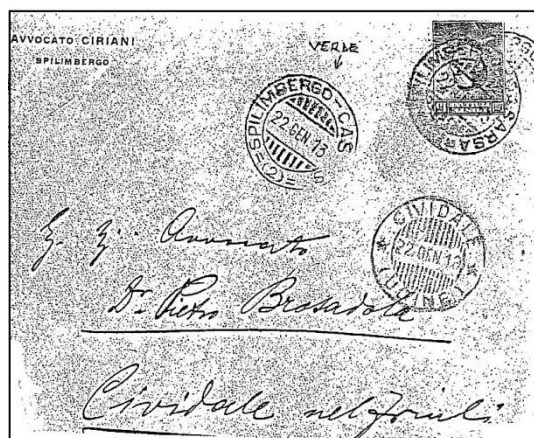 AVVOCATO CIRIANI
SPILIMBERGO
VERDE
SPILIMBERGO-CAS S
22.GEN.13
(2)
CIVIDALE
22.GEN.13
(UDINE)
Avvocato
Dr. Pietro Brosadola
Cividale nel Friuli